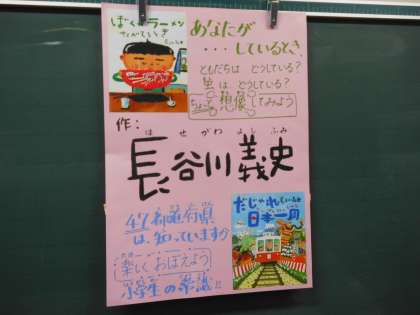 ぼくがラーメン
たべてるとき
あなたが
・・・しているとき、
ともだちは どうしている?
はどうしている?
ちょっと想像してみよう
作:
はせがわよしふみ
長谷川義史
47都道府県
は、知っていますか
だじゃれ
日本一周
楽しくおぼえよう
小学生の常識に